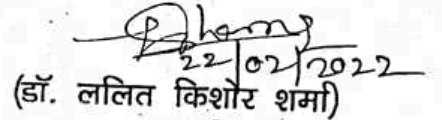 22/02/2022
(डॉ. ललित किशोर शर्मा)